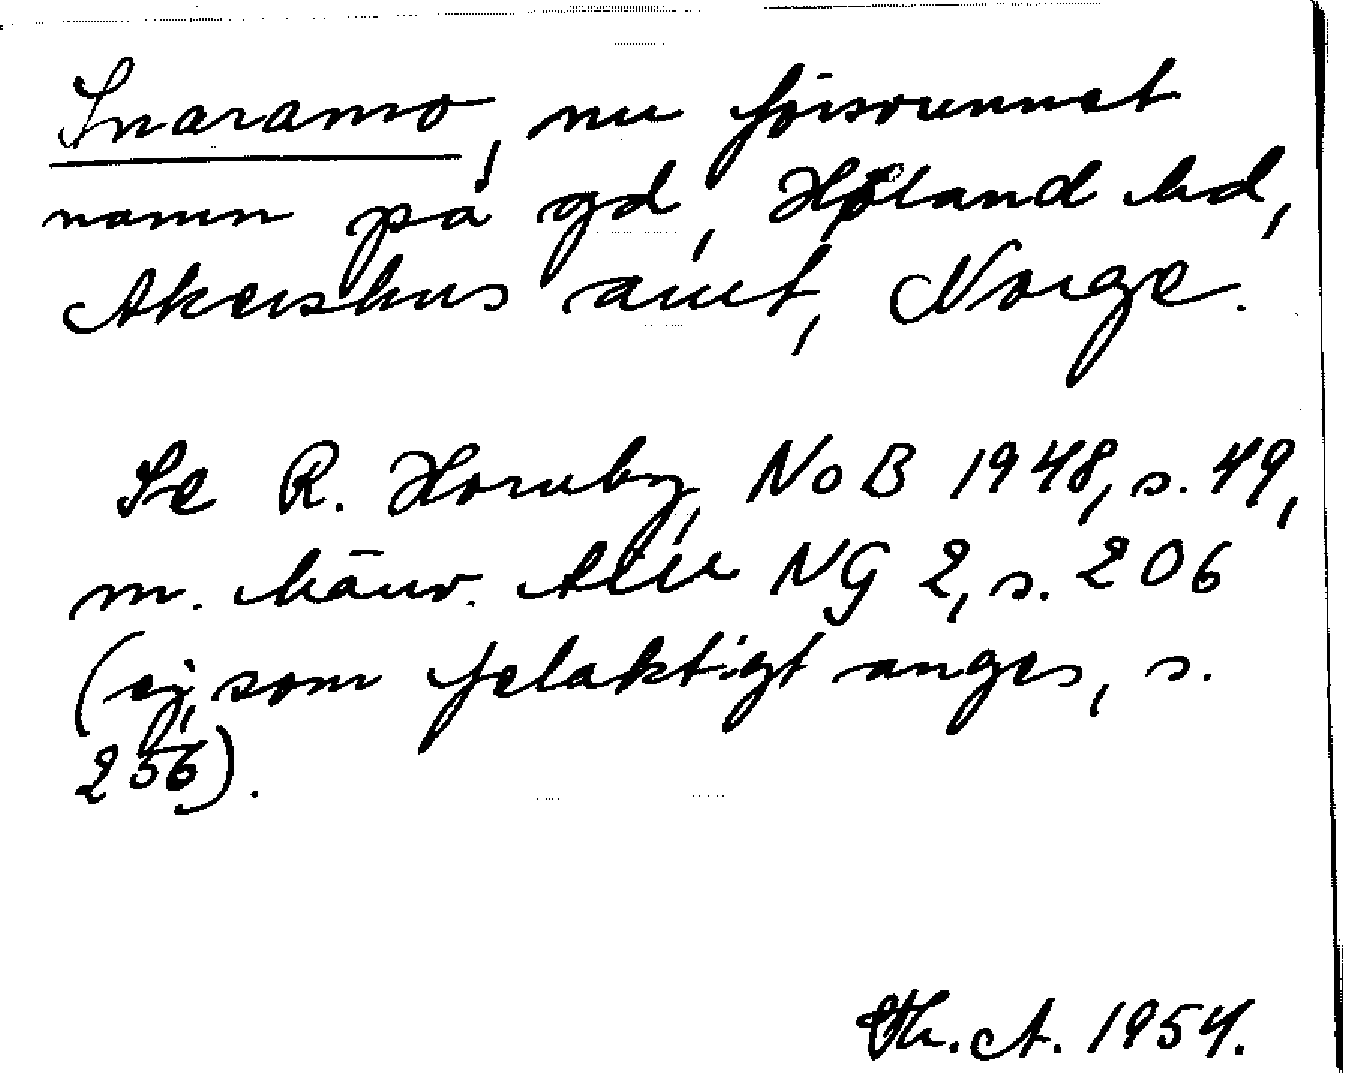 Snaramo, nu försvunnet
namn på gd, Høland hd,
Akershus amt, Norge.
Se R. Hornby, NoB 1948, s. 49,
m. hänv. till NG 2, s. 206
(ej, som felaktigt anges, s.
256).
Th. A. 1954.